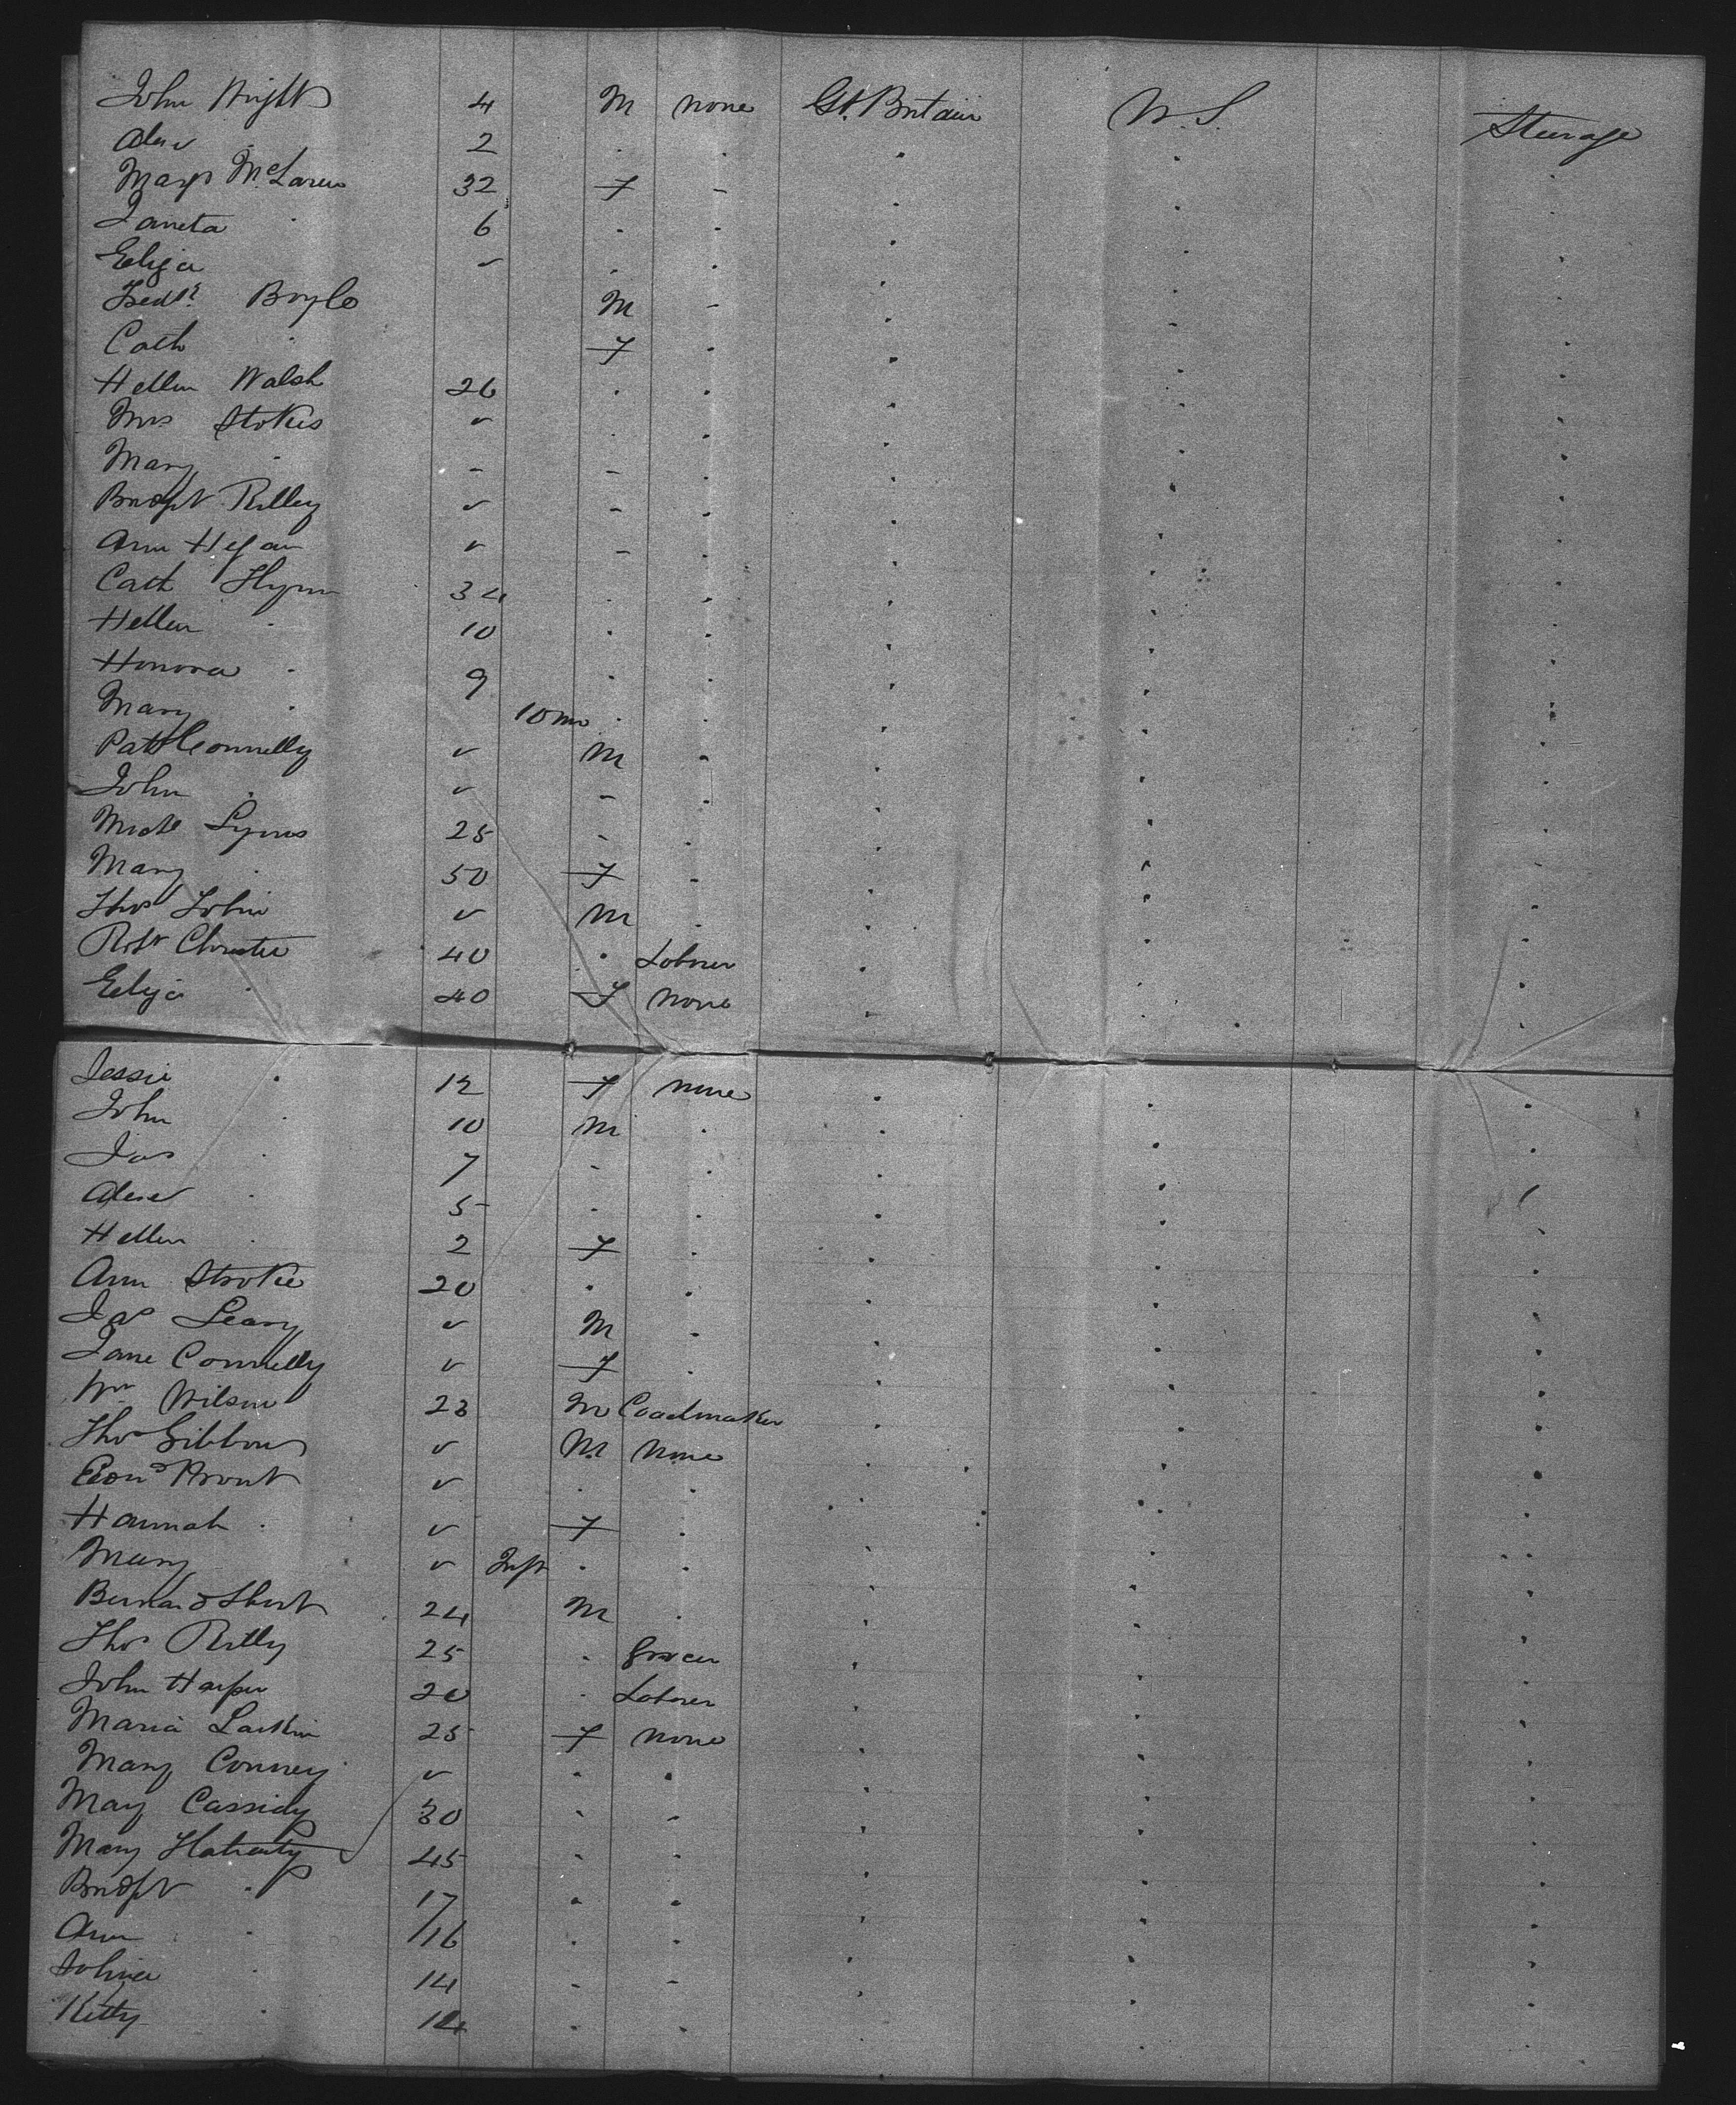 John Wright 4 M none Gt. Britain U.S. Steerage
Alexr . 2 . . . . .
Mary McLaren 32 F - . . .
Janeta . 6 . . . . .
Eliza ✓ . . . . .
Fredk. Boyle M - . . .
Cath . F . . . .
Hellen Walsh 26 . . . . .
Mrs Stokes ✓ . . . . .
Mary . - - . . . .
Bridget Rilley ✓ - . . . .
Ann Hegan ✓ - . . . .
Cath Flynn 34 . . . . .
Hellen . 10 . . . . .
Honora . 9 . . . . .
Mary . 10 mo . . . . .
Patt Connelly ✓ M - . . .
John . ✓ - . . . .
Michl Lyons 25 - . . . .
Mary . 50 F - . . .
Thos Tobin ✓ M . . . .
Robt Christie 40 . Laborer . . .
Eliza . 40 F none . . .
Jessie . 12 F none . . .
John . 10 M . . . .
Jas . 7 - . . . .
Alexr . 5 - . . . .
Hellen . 2 F . . . .
Ann Stroke 20 . . . . .
Jas Leary ✓ M . . . .
Jane Connelly ✓ F . . . .
Wm Wilson 23 M Coachmaker . . .
Thos Gibbons ✓ M none . . .
Edwd Prout ✓ . . . . .
Hannah . ✓ F . . . .
Mary ✓ Inft . . . . .
Bernard Short 24 M . . . .
Thos Rilly 25 . Grocer . . .
John Harper 20 . Laborer . . .
Maria Larkin 25 F none . . .
Mary Conney ✓ . . . . .
Mary Cassidy 30 - - . . .
Mary Flaherty 45 - - . . .
Bridget . 17 . . . . .
Ann . 16 . . . . .
Johna . 14 - - . . .
Kitty . 14 . . . . .